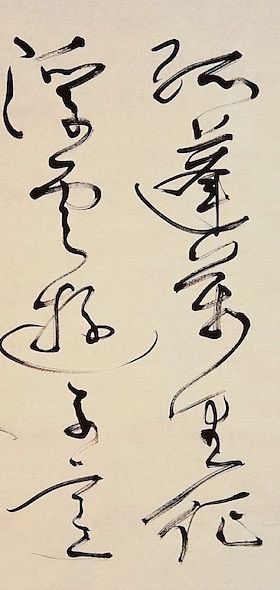 孤蓬萬里征
浮雲遊子意